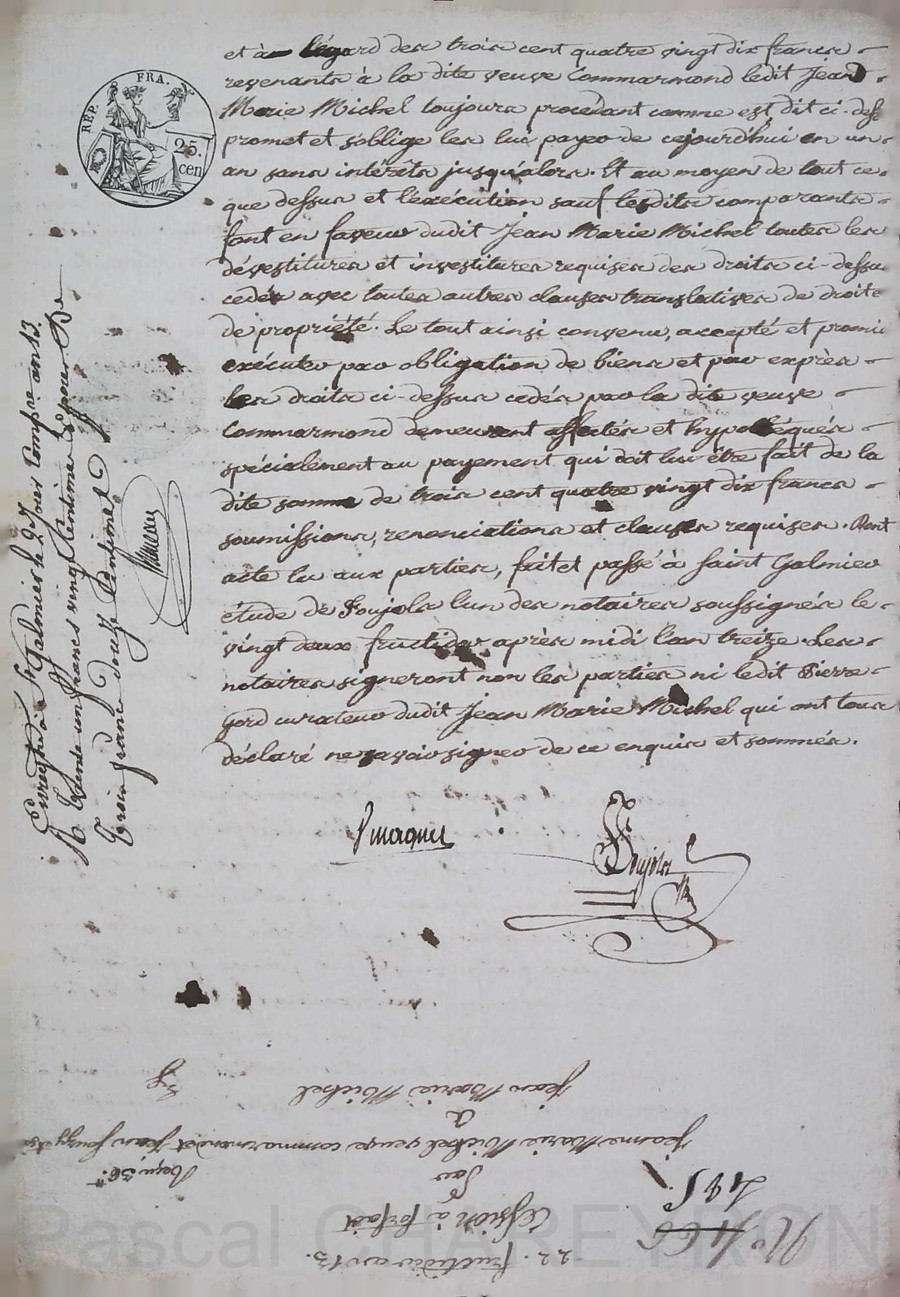 RÉP. FRA.
25.
cen
et à l'égard des trois cent quatre vingt dix francs
revenants à la dite veuve Commarmond ledit Jean
Marie Michel toujours procédant comme est dit ci-dess
promet et s'oblige les lui payer de cejourd'hui en un
an sans intérêts jusqu'alors. Et au moyen de tout ce
que dessus et l'exécution sauf lesdits comparants
font en faveur dudit Jean Marie Michel toutes les
dévestitures et investitures requises des droits ci-dessu
cedés avec toutes autres clauses translatives de droite
de propriété. Le tout ainsi convenu, accepté et promi
exécuter par obligation de biens et par exprès
les droits ci-dessus cedés par la dite veuve
Commarmond demeurent affectés et hypothéqués
spécialement au payement qui doit lui être fait de la
dite somme de trois cent quatre vingt dix francs
soumissions, renonciations et clauses requises. Dont
acte lu aux parties, fait et passé à Saint Galmier
étude de Poujols l'un des notaires soussignés le
vingt deux fructidor après midi l'an treize. Les
notaires signeront non les parties ni ledit Pierre
Gord curateur dudit Jean Marie Michel qui ont tous
déclaré ne savoir signer de ce enquis et sommés.
Poujols
Enregistré à St Galmier le 2e Jour Comp.re an 13.
trente un francs vingt Centimes
trois francs douze Centimes
N° 466
495.
22. fructidor an 13.
Cession à forfait
Par
Jeanne Marie Michel veuve commarmond et Jean
à
Jean Marie Michel
Pascal CHAREYRON